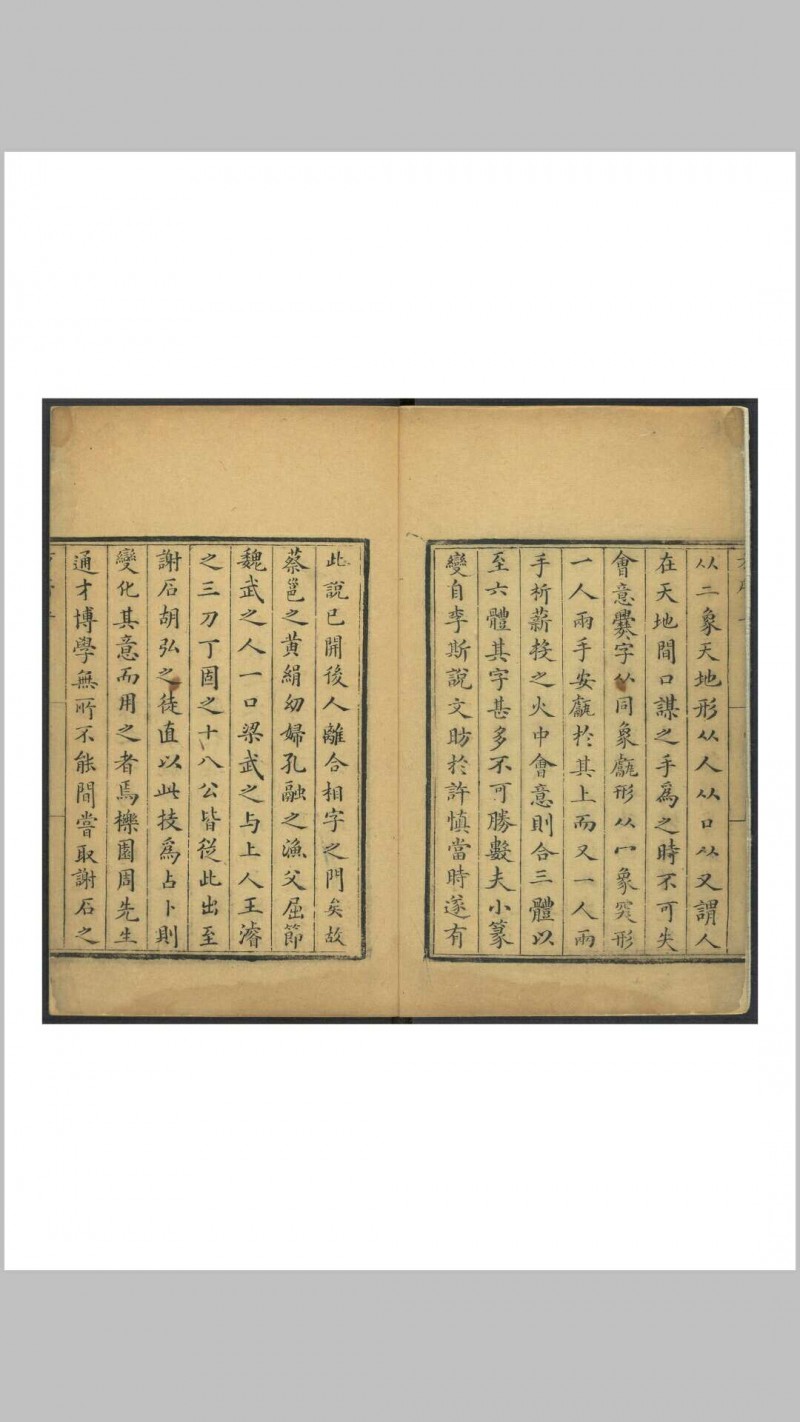 从二象天地形从人从口从又謂人
在天地間口謀之手爲之時不可失
會意爨字从同象甗形从冖象窔形
一人兩手安甗於其上而又一人兩
手析薪投之火中會意則合三體以
至六體其字甚多不可勝數夫小篆
變自李斯說文昉於許慎當時遂有
此說已開後人離合相字之門矣故
蔡邕之黃絹幼婦孔融之漁父屈節
魏武之人一口梁武之与上人王濬
之三刀丁固之十八公皆從此出至
謝石胡弘之徒直以此技爲占卜則
變化其意而用之者焉櫟園周先生
通才博學無所不能間嘗取謝石之